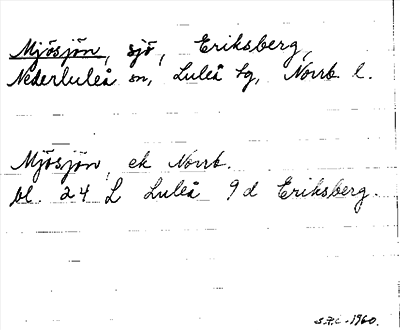 Mjösjön, sjö, Eriksberg,
Nederluleå sn, Luleå tg, Norrb l.
Mjösjön, ek Norrb.
bl. 24 L Luleå 9d Eriksberg.
1960.